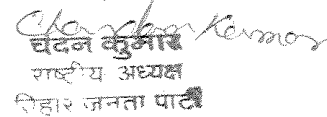 Chandan Kumar
चंदन कुमार
राष्ट्रीय अध्यक्ष
बिहार जनता पार्टी